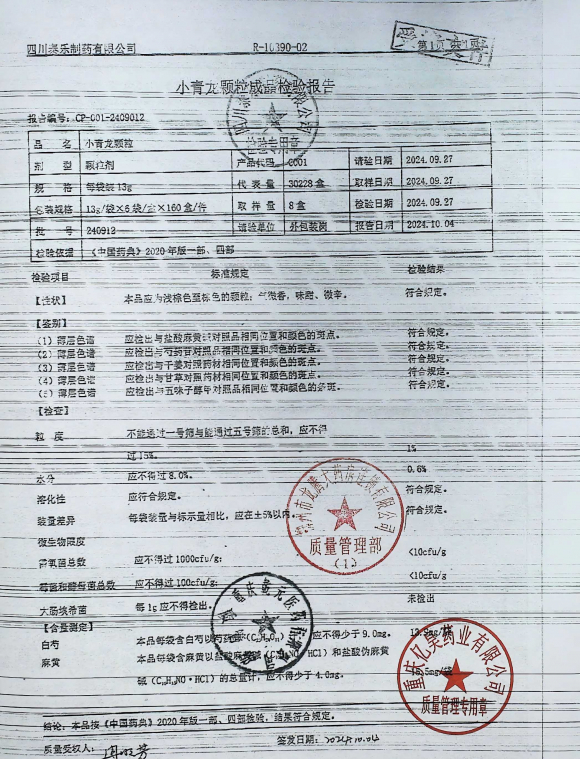 四川泰乐制药有限公司 R-10390-02 第1页 共1页
小青龙颗粒成品检验报告
报告编号：CP-001-2409012
品 名 小青龙颗粒
剂 型 颗粒剂 产品代码 0001 请验日期 2024.09.27
规 格 每袋装13g 代表量 30228盒 取样日期 2024.09.27
包装规格 13g/袋×6袋/盒×160盒/件 取样量 8盒 检验日期 2024.09.27
批 号 240912 请验单位 外包装岗 报告日期 2024.10.04
检验依据 《中国药典》2020年版一部、四部
检验项目 标准规定 检验结果
【性状】 本品应为浅棕色至棕色的颗粒；气微香，味甜、微辛。 符合规定。
【鉴别】
(1) 薄层色谱 应检出与盐酸麻黄碱对照品相同位置和颜色的斑点。 符合规定。
(2) 薄层色谱 应检出与芍药苷对照品相同位置和颜色的斑点。 符合规定。
(3) 薄层色谱 应检出与干姜对照药材相同位置和颜色的斑点。 符合规定。
(4) 薄层色谱 应检出与甘草对照药材相同位置和颜色的斑点。 符合规定。
(5) 薄层色谱 应检出与五味子醇甲对照品相同位置和颜色的斑点。 符合规定。
【检查】
粒 度 不能通过一号筛与能通过五号筛的总和，应不得
过15%。 1%
水分 应不得过8.0%。 0.6%
溶化性 应符合规定。 符合规定。
装量差异 每袋装量与标示量相比，应在±5%以内。 符合规定。
微生物限度
需氧菌总数 应不得过1000cfu/g； <10cfu/g
霉菌和酵母菌总数 应不得过100cfu/g； <10cfu/g
大肠埃希菌 每1g应不得检出。 未检出
【含量测定】
白芍 本品每袋含白芍以芍药苷 应不得少于9.0mg。
麻黄 本品每袋含麻黄以盐酸麻黄碱 和盐酸伪麻黄
碱 的总量计，应不得少于4.0mg。
结论：本品按《中国药典》2020年版一部、四部检验，结果符合规定。
质量受权人： 签发日期：2024.10.04
质量管理部
(1)
重庆亿昊药业有限公司
质量管理专用章